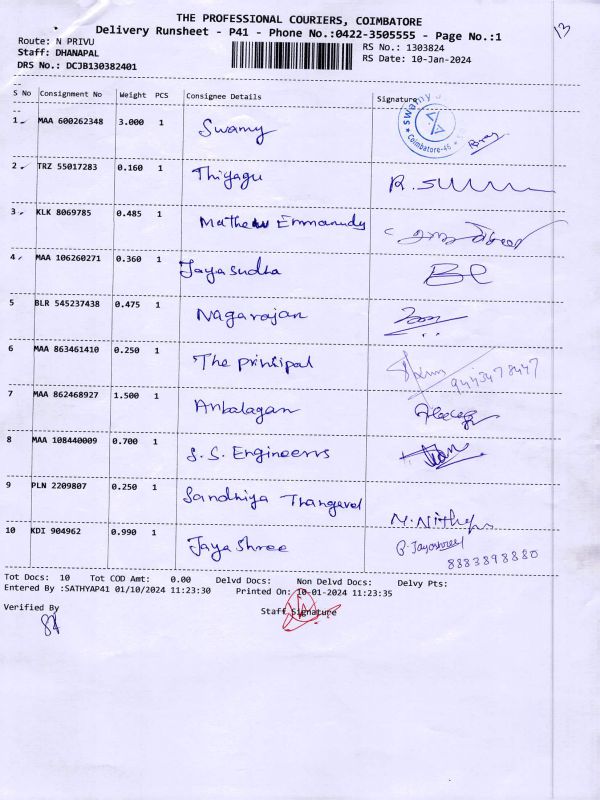 THE PROFESSIONAL COURIERS, COIMBATORE
13
Delivery Runsheet - P41 - Phone No.:0422-3505555 - Page No.:1
Route: N PRIVU
RS No.: 1303824
Staff: DHANAPAL
RS Date: 10-Jan-2024
DRS No.: DCJB130382401
S No Consignment No Weight PCS Consignee Details Signature
1 MAA 600262348 3.000 1 Swamy
Coimbatore-45
2 TRZ 55017283 0.160 1 Thiyagu
3 KLK 8069785 0.485 1 Mathew Emmanudy
4 MAA 106260271 0.360 1 Jayasudha
5 BLR 545237438 0.475 1 Nagarajan
6 MAA 863461410 0.250 1 The principal 9443478447
7 MAA 862468927 1.500 1 Anbalagan
8 MAA 108440009 0.700 1 S.S. Engineers
9 PLN 2209807 0.250 1 Sandhiya Thangavel
10 KDI 904962 0.990 1 Jayashree P. Jayashree
8883898880
Tot Docs: 10 Tot COD Amt: 0.00 Delvd Docs: Non Delvd Docs: Delvy Pts:
Entered By :SATHYAP41 01/10/2024 11:23:30 Printed On: 10-01-2024 11:23:35
Verified By Staff Signature